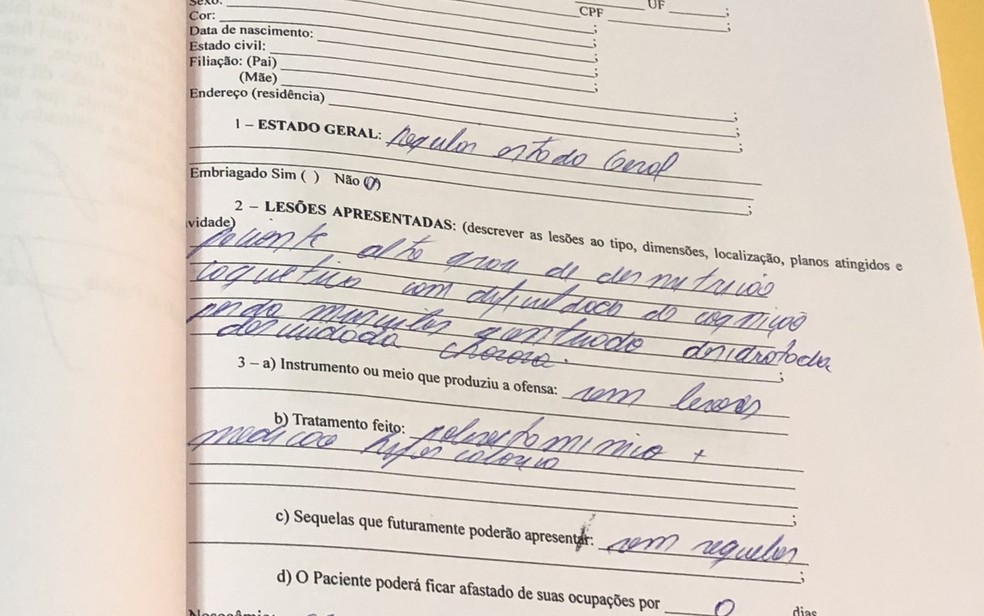 Sexo:
CPF UF ;
Cor: ; ;
Data de nascimento: ;
Estado civil: ;
Filiação: (Pai) ;
(Mãe) ;
Endereço (residência) ;
1 – ESTADO GERAL: Regular estado Geral
;
Embriagado Sim ( ) Não (X)
;
2 – LESÕES APRESENTADAS: (descrever as lesões ao tipo, dimensões, localização, planos atingidos e
vidade) paciente alto grau de desnutrição
caquético com dificuldade de cognição
perda muscular desidratada
descuidada chorosa. ;
3 – a) Instrumento ou meio que produziu a ofensa: sem lesões
b) Tratamento feito: polivitamínico +
medicação hiper calórica
;
c) Sequelas que futuramente poderão apresentar: sem sequelas
;
d) O Paciente poderá ficar afastado de suas ocupações por 0 dias
Nosocômio: